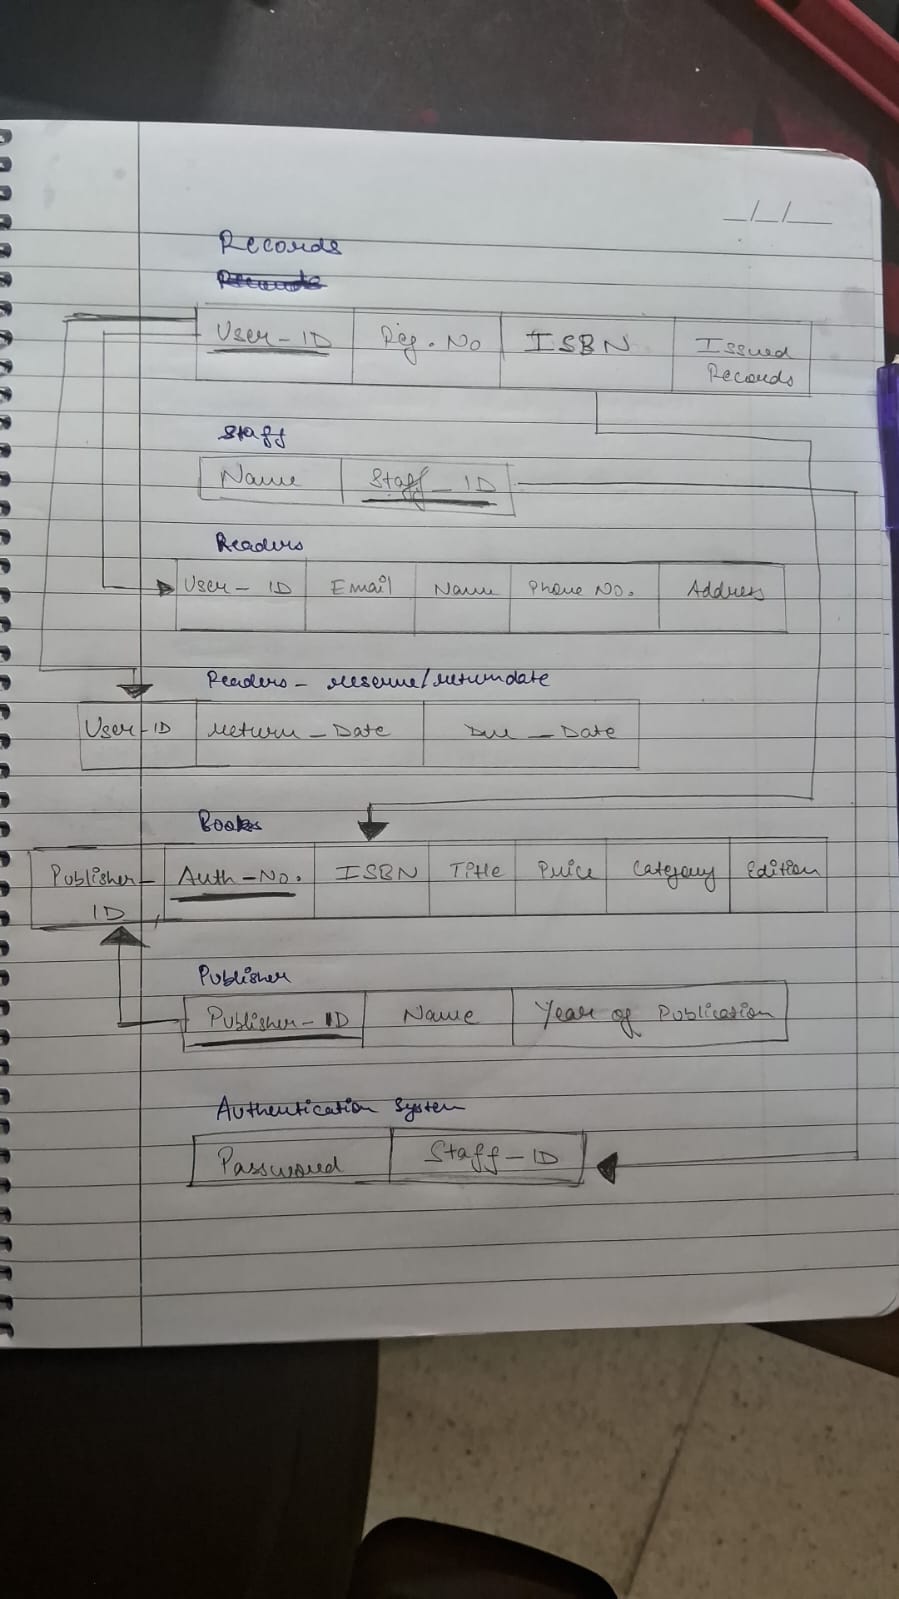 _/_/__
Records
User-ID Reg. No ISBN Issued Records
Staff
Name Staff_ID
Readers
User-ID Email Name Phone No. Address
Readers - reserve/returndate
User-ID return_Date Due_Date
Books
Publisher-ID Auth-No. ISBN Title Price Category Edition
Publisher
Publisher-ID Name Year of Publication
Authentication System
Password Staff-ID